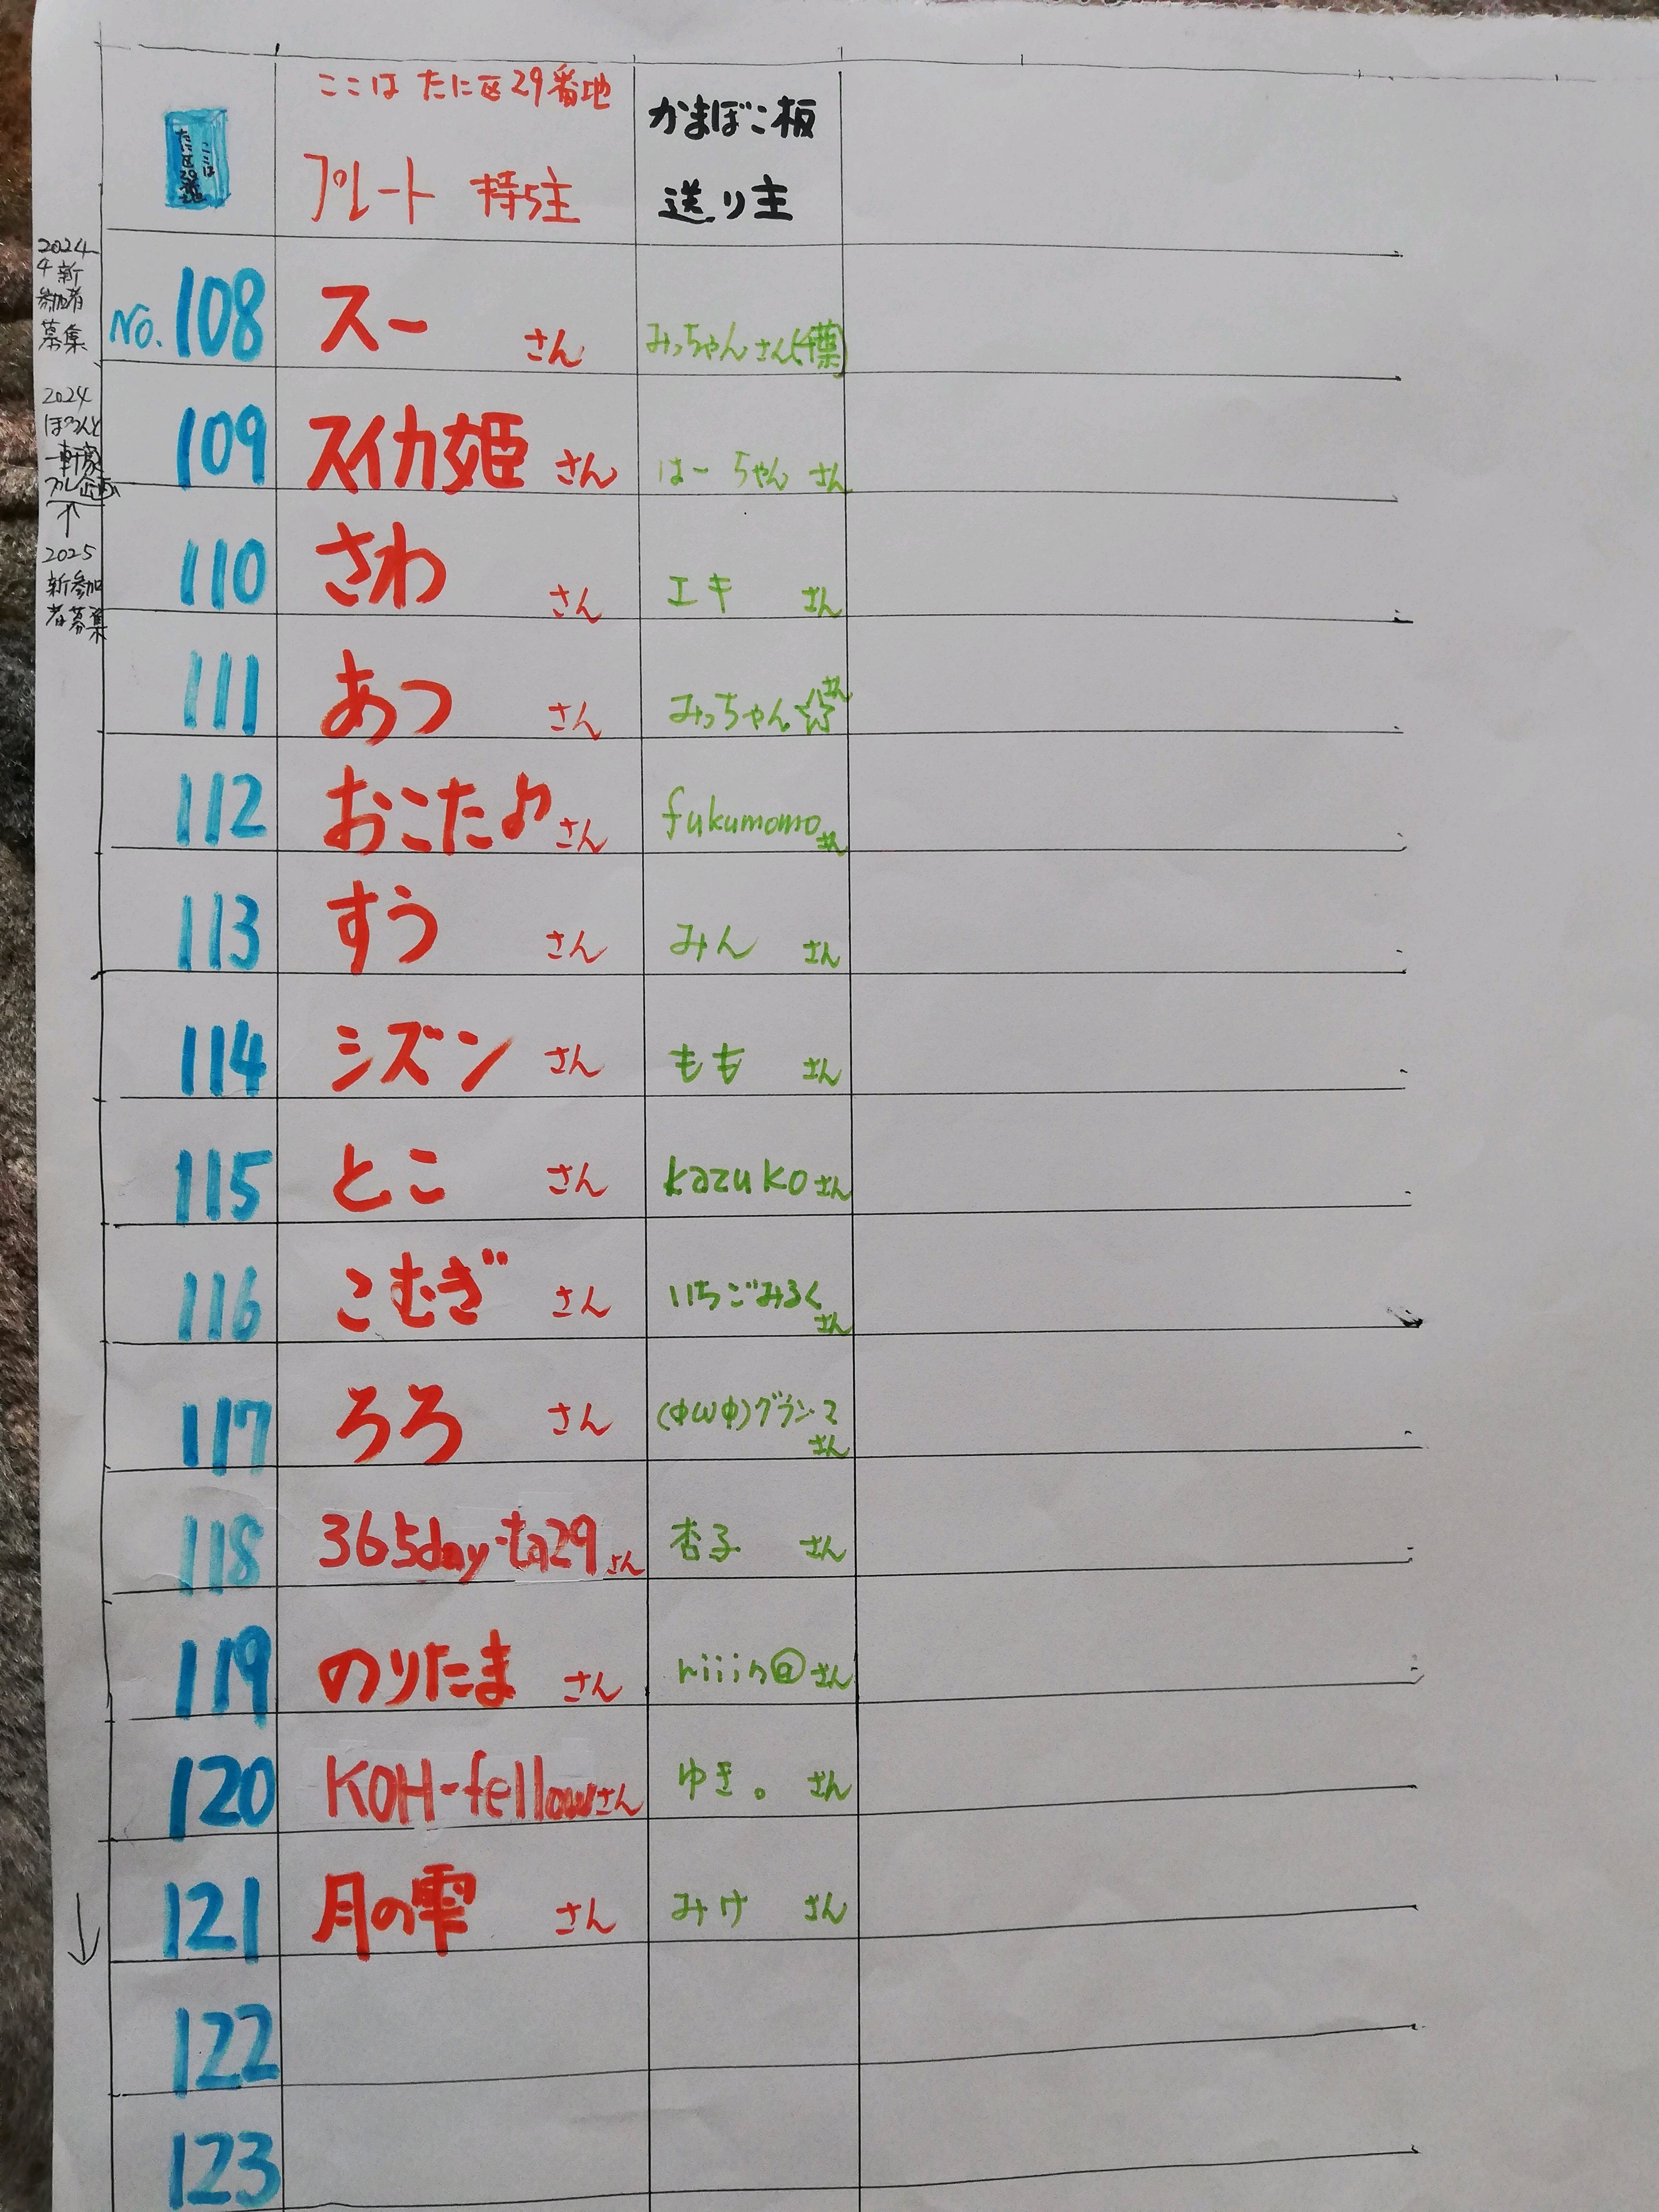 ここは たに区29番地
ここは
たに区29番地
プレート 持ち主
かまぼこ板
送り主
2024
4 新
参加者
募集
No. 108 スー さん みっちゃんさん(千葉)
2024
ぽつんと
一軒家
プレ企画
↑
2025
新参加
者募集
109 スイカ姫 さん はーちゃん さん
110 さわ さん エキ さん
111 あつ さん みっちゃん☆さん
112 おこた♪さん fukumomoさん
113 すう さん みん さん
114 シズン さん もも さん
115 とこ さん kazukoさん
116 こむぎ さん いちごみるくさん
117 ろろ さん (ФωФ)グランマさん
118 365day-ta29さん 杏子 さん
119 のりたま さん niiin@さん
120 KOH-fellowさん ゆき。 さん
121 月の雫 さん みけ さん
122
123